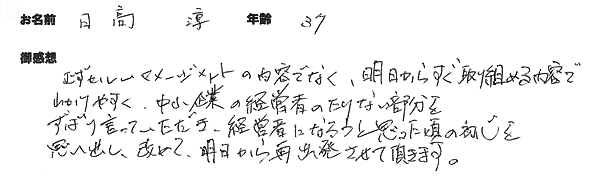 お名前 日高 淳 年齢 37
御感想
むずかしいマネージメントの内容でなく、明日からすぐ取り組める内容で
わかりやすく、中小企業の経営者のたりない部分を
ずばり言っていただき、経営者になろうと思った頃の初心を
思い出し、改めて、明日から再出発させて頂きます。